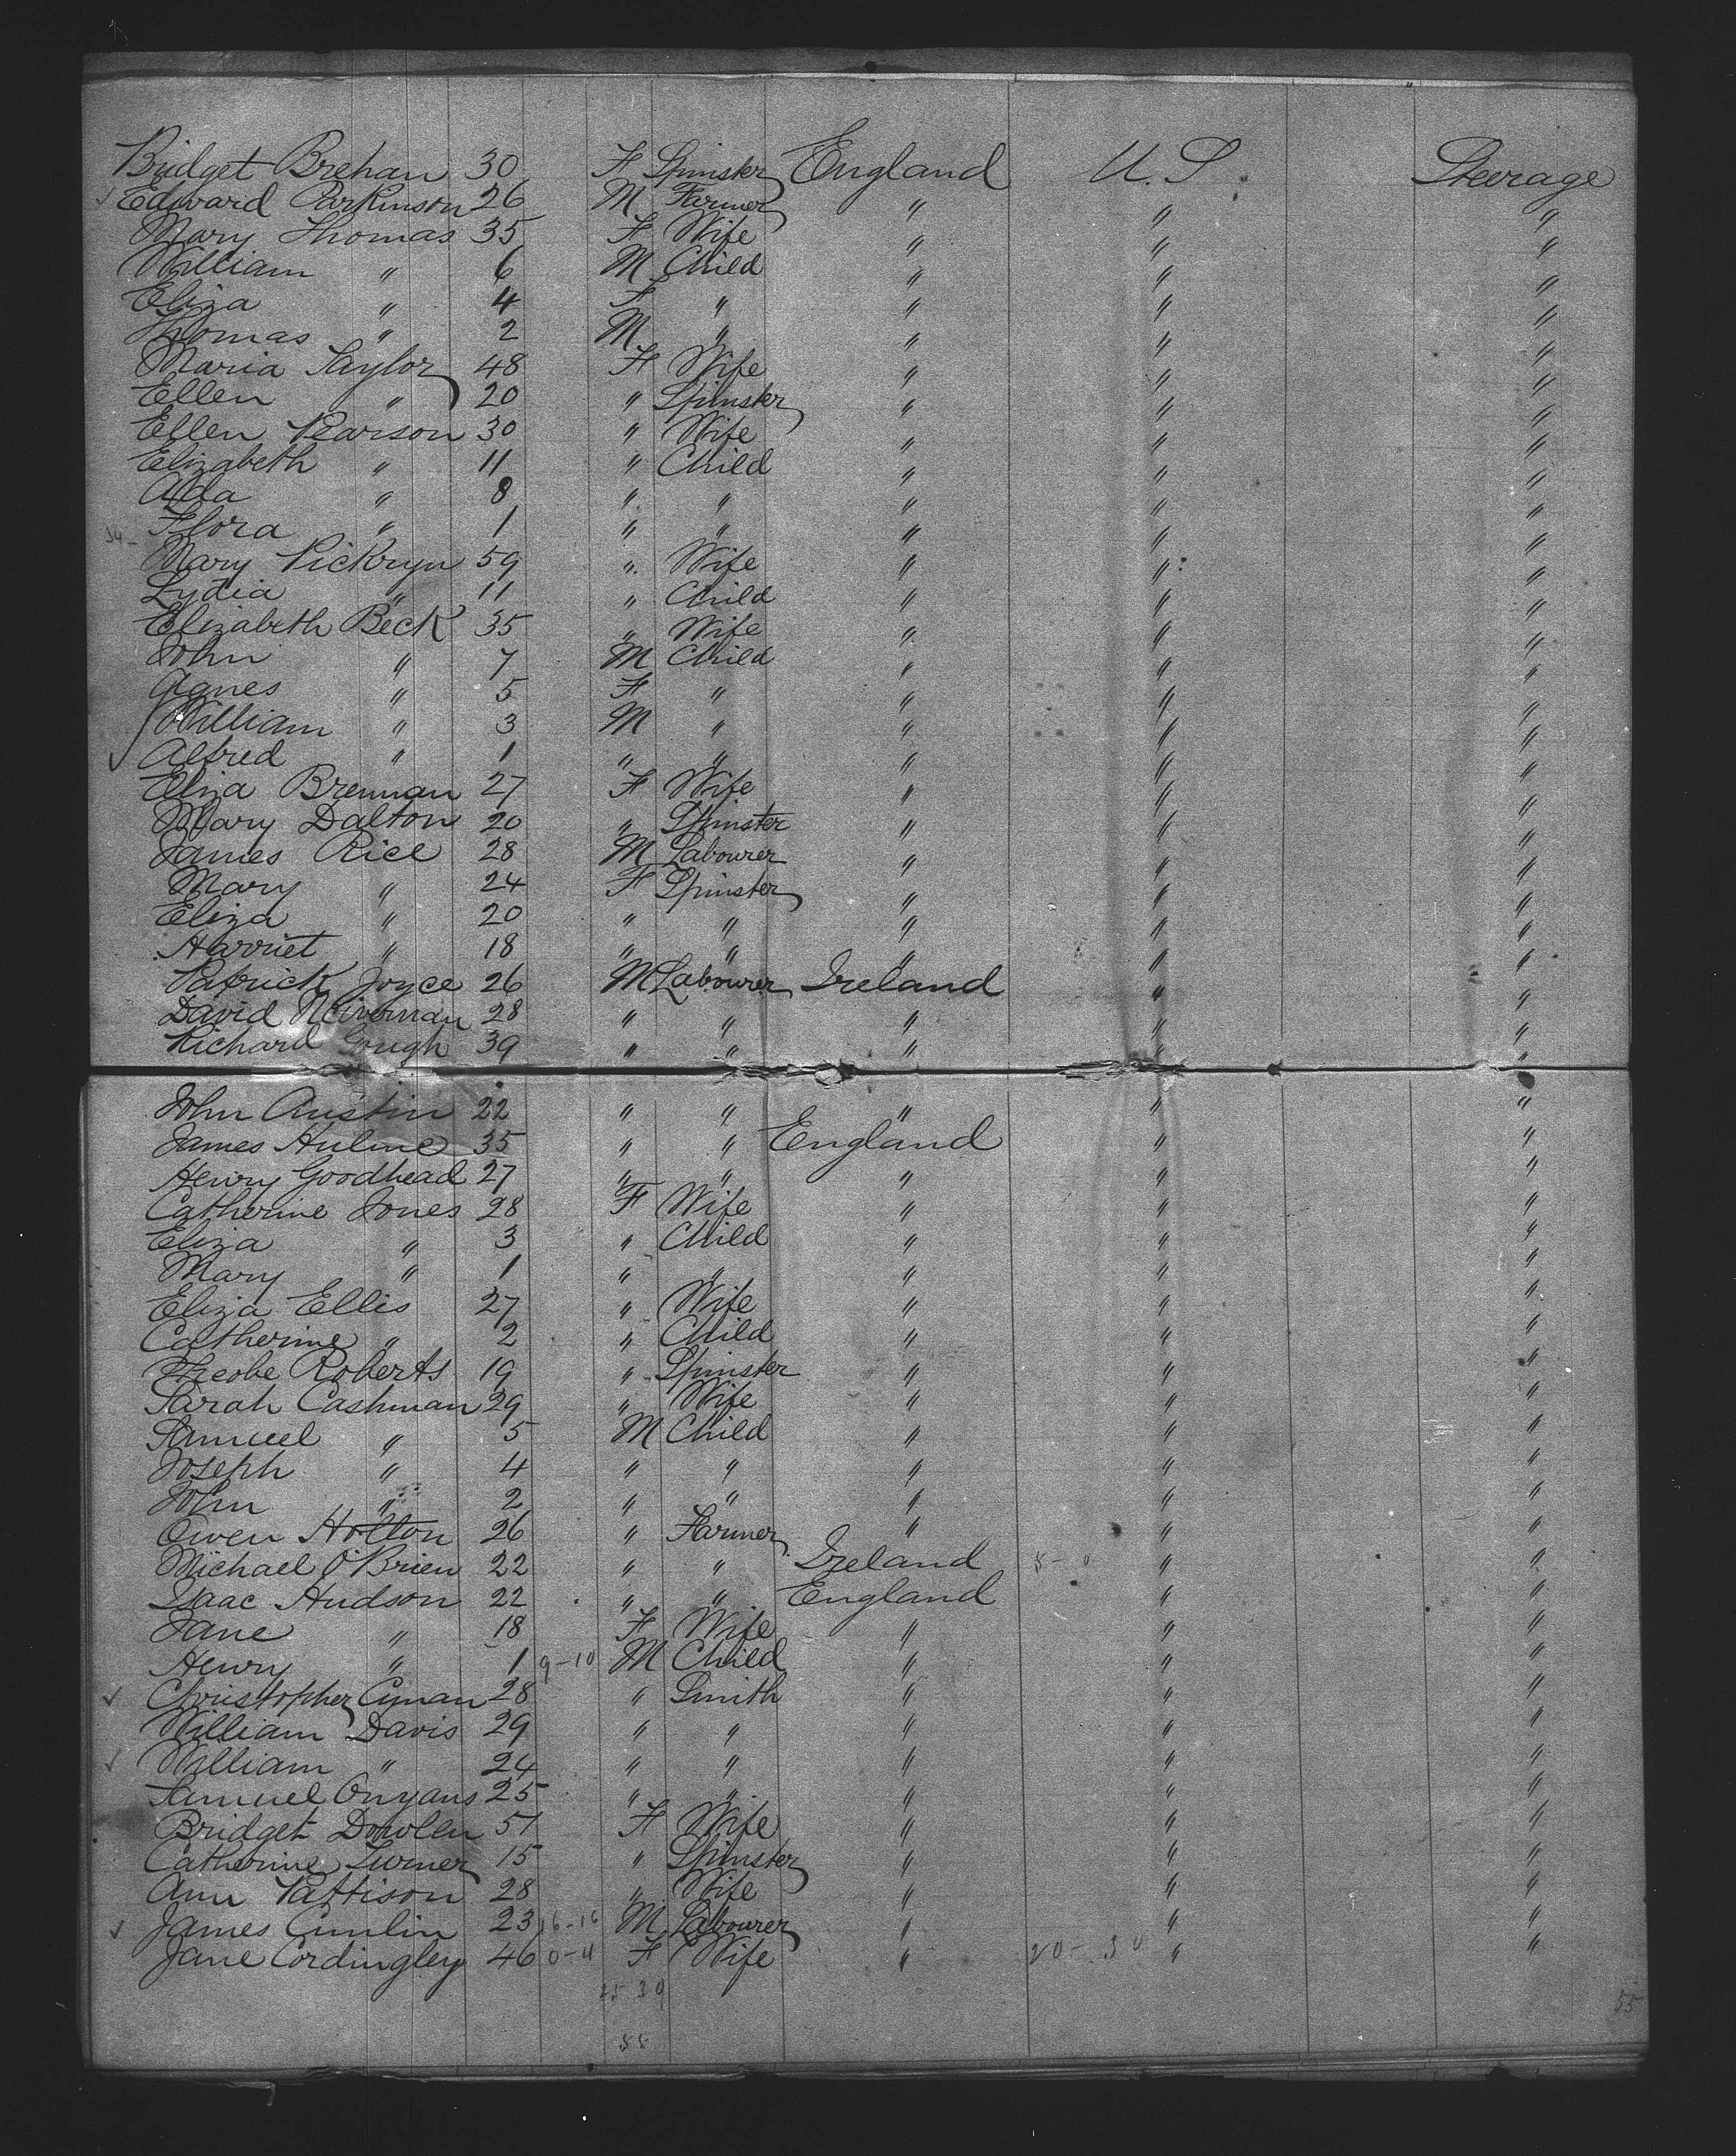 Bridget Brehan 30 F Spinster England U.S. Steerage
Edward Parkinson 26 M Farmer " " "
Mary Thomas 35 F Wife " " "
William " 6 M Child " " "
Eliza " 4 F " " " "
Thomas " 2 M " " " "
Maria Taylor 48 F Wife " " "
Ellen " 20 " Spinster " " "
Ellen Pearson 30 " Wife " " "
Elizabeth " 11 " Child " " "
Ada " 8 " " " " "
Flora " 1 " " " " "
Mary Pickryn 59 " Wife " " "
Lydia " 11 " Child " " "
Elizabeth Beck 35 " Wife " " "
John " 7 M Child " " "
Agnes " 5 F " " " "
William " 3 M " " " "
Alfred " 1 " " " " "
Eliza Brennan 27 F Wife " " "
Mary Dalton 20 " Spinster " " "
James Rice 28 M Labourer " " "
Mary " 24 F Spinster " " "
Eliza " 20 " " " " "
Harriet " 18 " " " " "
Patrick Joyce 26 M Labourer Ireland " "
David 28 " " " " "
Richard Gough 39 " " " " "
John Austin 22 " " " " "
James Hulme 35 " " England " "
Henry Goodhead 27 " " " " "
Catherine Jones 28 F Wife " " "
Eliza " 3 " Child " " "
Mary " 1 " " " " "
Eliza Ellis 27 " Wife " " "
Catherine " 2 " Child " " "
Pheobe Roberts 19 " Spinster " " "
Sarah Cashman 29 " Wife " " "
Samuel " 5 M Child " " "
Joseph " 4 " " " " "
John " 2 " " " " "
Owen Holton 26 " Farmer " " "
Michael O'Brien 22 " " Ireland " "
Isaac Hudson 22 " " England " "
Jane " 18 F Wife " " "
Henry " 1 9-10 M Child " " "
Christopher Cynan 28 " Smith " " "
William Davis 29 " " " " "
William " 24 " " " " "
Samuel Onyans 25 " " " " "
Bridget Dowlen 51 F Wife " " "
Catherine Turner 15 " Spinster " " "
Ann Pattison 28 " Wife " " "
James Cunlin 23 16-16 M Labourer " " "
Jane Cordingley 46 0-4 F Wife " 20-30 " "
25 39
55
55